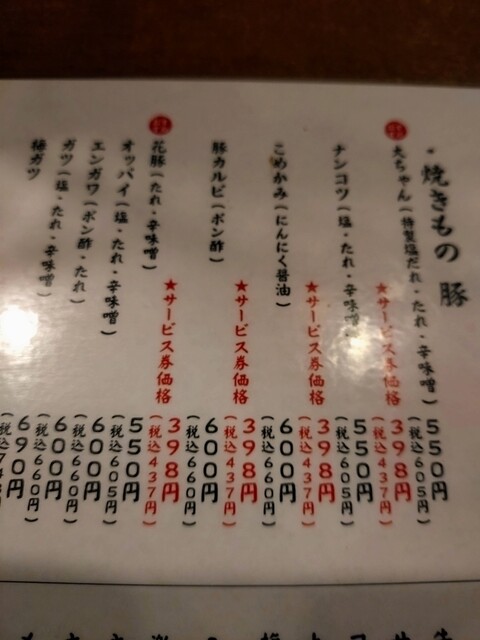 ・焼きもの 豚
おすすめ
夫ちゃん(特製塩だれ・たれ・辛味噌) 550円
(税込605円)
★サービス券価格 398円
(税込437円)
ナンコツ(塩・たれ・辛味噌) 550円
(税込605円)
★サービス券価格 398円
(税込437円)
こめかみ(にんにく醤油) 600円
(税込660円)
★サービス券価格 398円
(税込437円)
豚カルビ(ポン酢) 600円
(税込660円)
★サービス券価格 398円
(税込437円)
花豚(たれ・辛味噌) 550円
(税込605円)
オッパイ(塩・たれ・辛味噌) 600円
(税込660円)
エンガワ(ポン酢・たれ) 600円
(税込660円)
ガツ(塩・たれ・辛味噌) 690円
梅ガツ